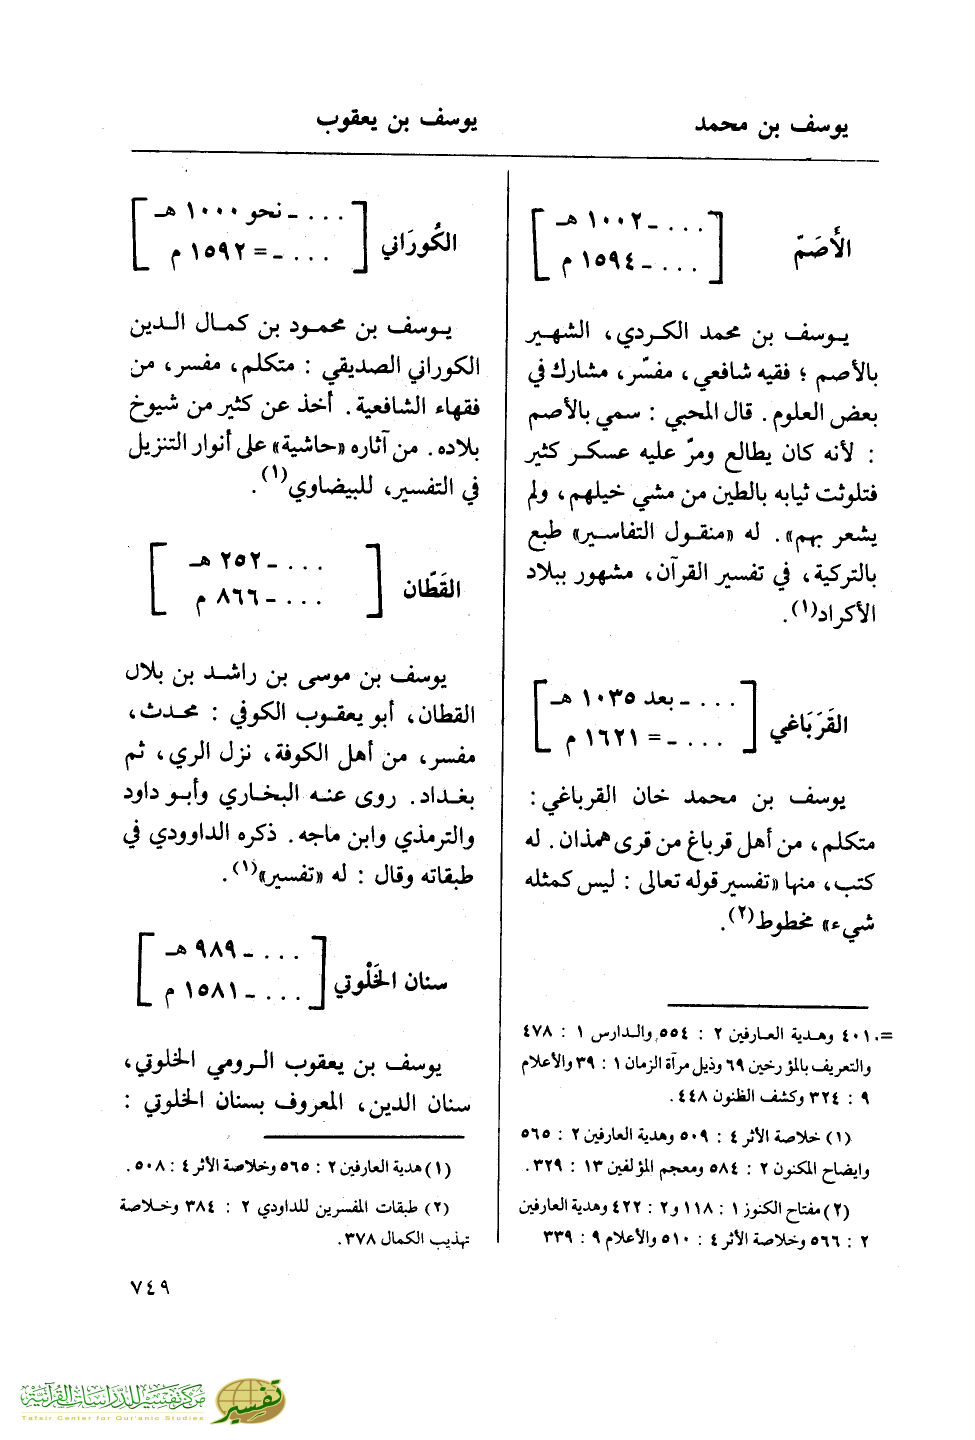 يوسف بن محمد
يوسف بن يعقوب
الأَصَمّ
... ـ ١٠٠٢ هـ
... ـ ١٥٩٤ م
يـوسف بن محمد الكـردي، الشهـير
بالأصم ؛ فقيه شافعي، مفسّر، مشارك في
بعض العلوم. قال المحبي : سمي بالأصم
: لأنه كان يطالع ومرّ عليه عسكـر كثير
فتلوثت ثيابه بالطين من مشي خيلهم، ولم
يشعر بهم». له «منقـول التفاسـير» طبع
بالتركية، في تفسير القرآن، مشهور ببلاد
الأكراد(١).
القَرَبَاغي
... ـ بعد ١٠٣٥ هـ
... ـ = ١٦٢١ م
يوسف بن محمد خان القرباغي :
متكلم، من أهل قرباغ من قرى همذان. له
كتب، منها «تفسير قوله تعالى : ليس كمثله
شيء» مخطوط(٢).
=. ٤٠١ وهـدية العـارفين ٢ : ٥٥٤ والـدارس ١ : ٤٧٨
والتعريف بالمؤرخين ٦٩ وذيل مرآة الزمان ١ : ٣٩ والأعلام
٩ : ٣٢٤ وكشف الظنون ٤٤٨.
(١) خلاصة الأثر ٤ : ٥٠٩ وهدية العارفين ٢ : ٥٦٥
وايضاح المكنون ٢ : ٥٨٤ ومعجم المؤلفين ١٣ : ٣٢٩.
(٢) مفتاح الكنوز ١ : ١١٨ و٢ : ٤٢٢ وهدية العارفين
٢ : ٥٦٦ وخلاصة الأثر ٤ : ٥١٠ والأعلام ٩ : ٣٣٩
الكُورَاني
... ـ نحو ١٠٠٠ هـ
... ـ = ١٥٩٢ م
يـوسف بن محمـود بن كمـال الـدين
الكوراني الصديقي : متكلم، مفسر، من
فقهاء الشافعية. أخذ عن كثير من شيوخ
بلاده. من آثاره «حاشية» على أنوار التنزيل
في التفسير، للبيضاوي(١).
القَطّان
... ـ ٢٥٢ هـ
... ـ ٨٦٦ م
يوسف بن موسى بن راشـد بن بلال
القطان، أبو يعقـوب الكوفي : محـدث،
مفسر، من أهل الكوفة، نزل الري، ثم
بغـداد. روى عنـه البخـاري وأبـو داود
والترمذي وابن ماجه. ذكره الداوودي في
طبقاته وقال : له «تفسير»(١).
سنان الخَلْوتي
... ـ ٩٨٩ هـ
... ـ ١٥٨١ م
يوسف بن يعقوب الـرومي الخلوتي،
سنان الدين، المعروف بسنان الخلوتي :
(١) هدية العارفين ٢ : ٥٦٥ وخلاصة الأثر ٤ : ٥٠٨.
(٢) طبقات المفسرين للداودي ٢ : ٣٨٤ وخـلاصة
تهذيب الكمال ٣٧٨.
٧٤٩
مركز تفسير للدراسات القرآنية
Tafsir Center for Qur'anic Studies
تفسير